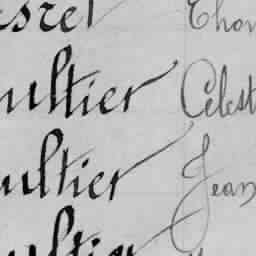 esret Thom
ultier Célest
ultier Jean
ultier